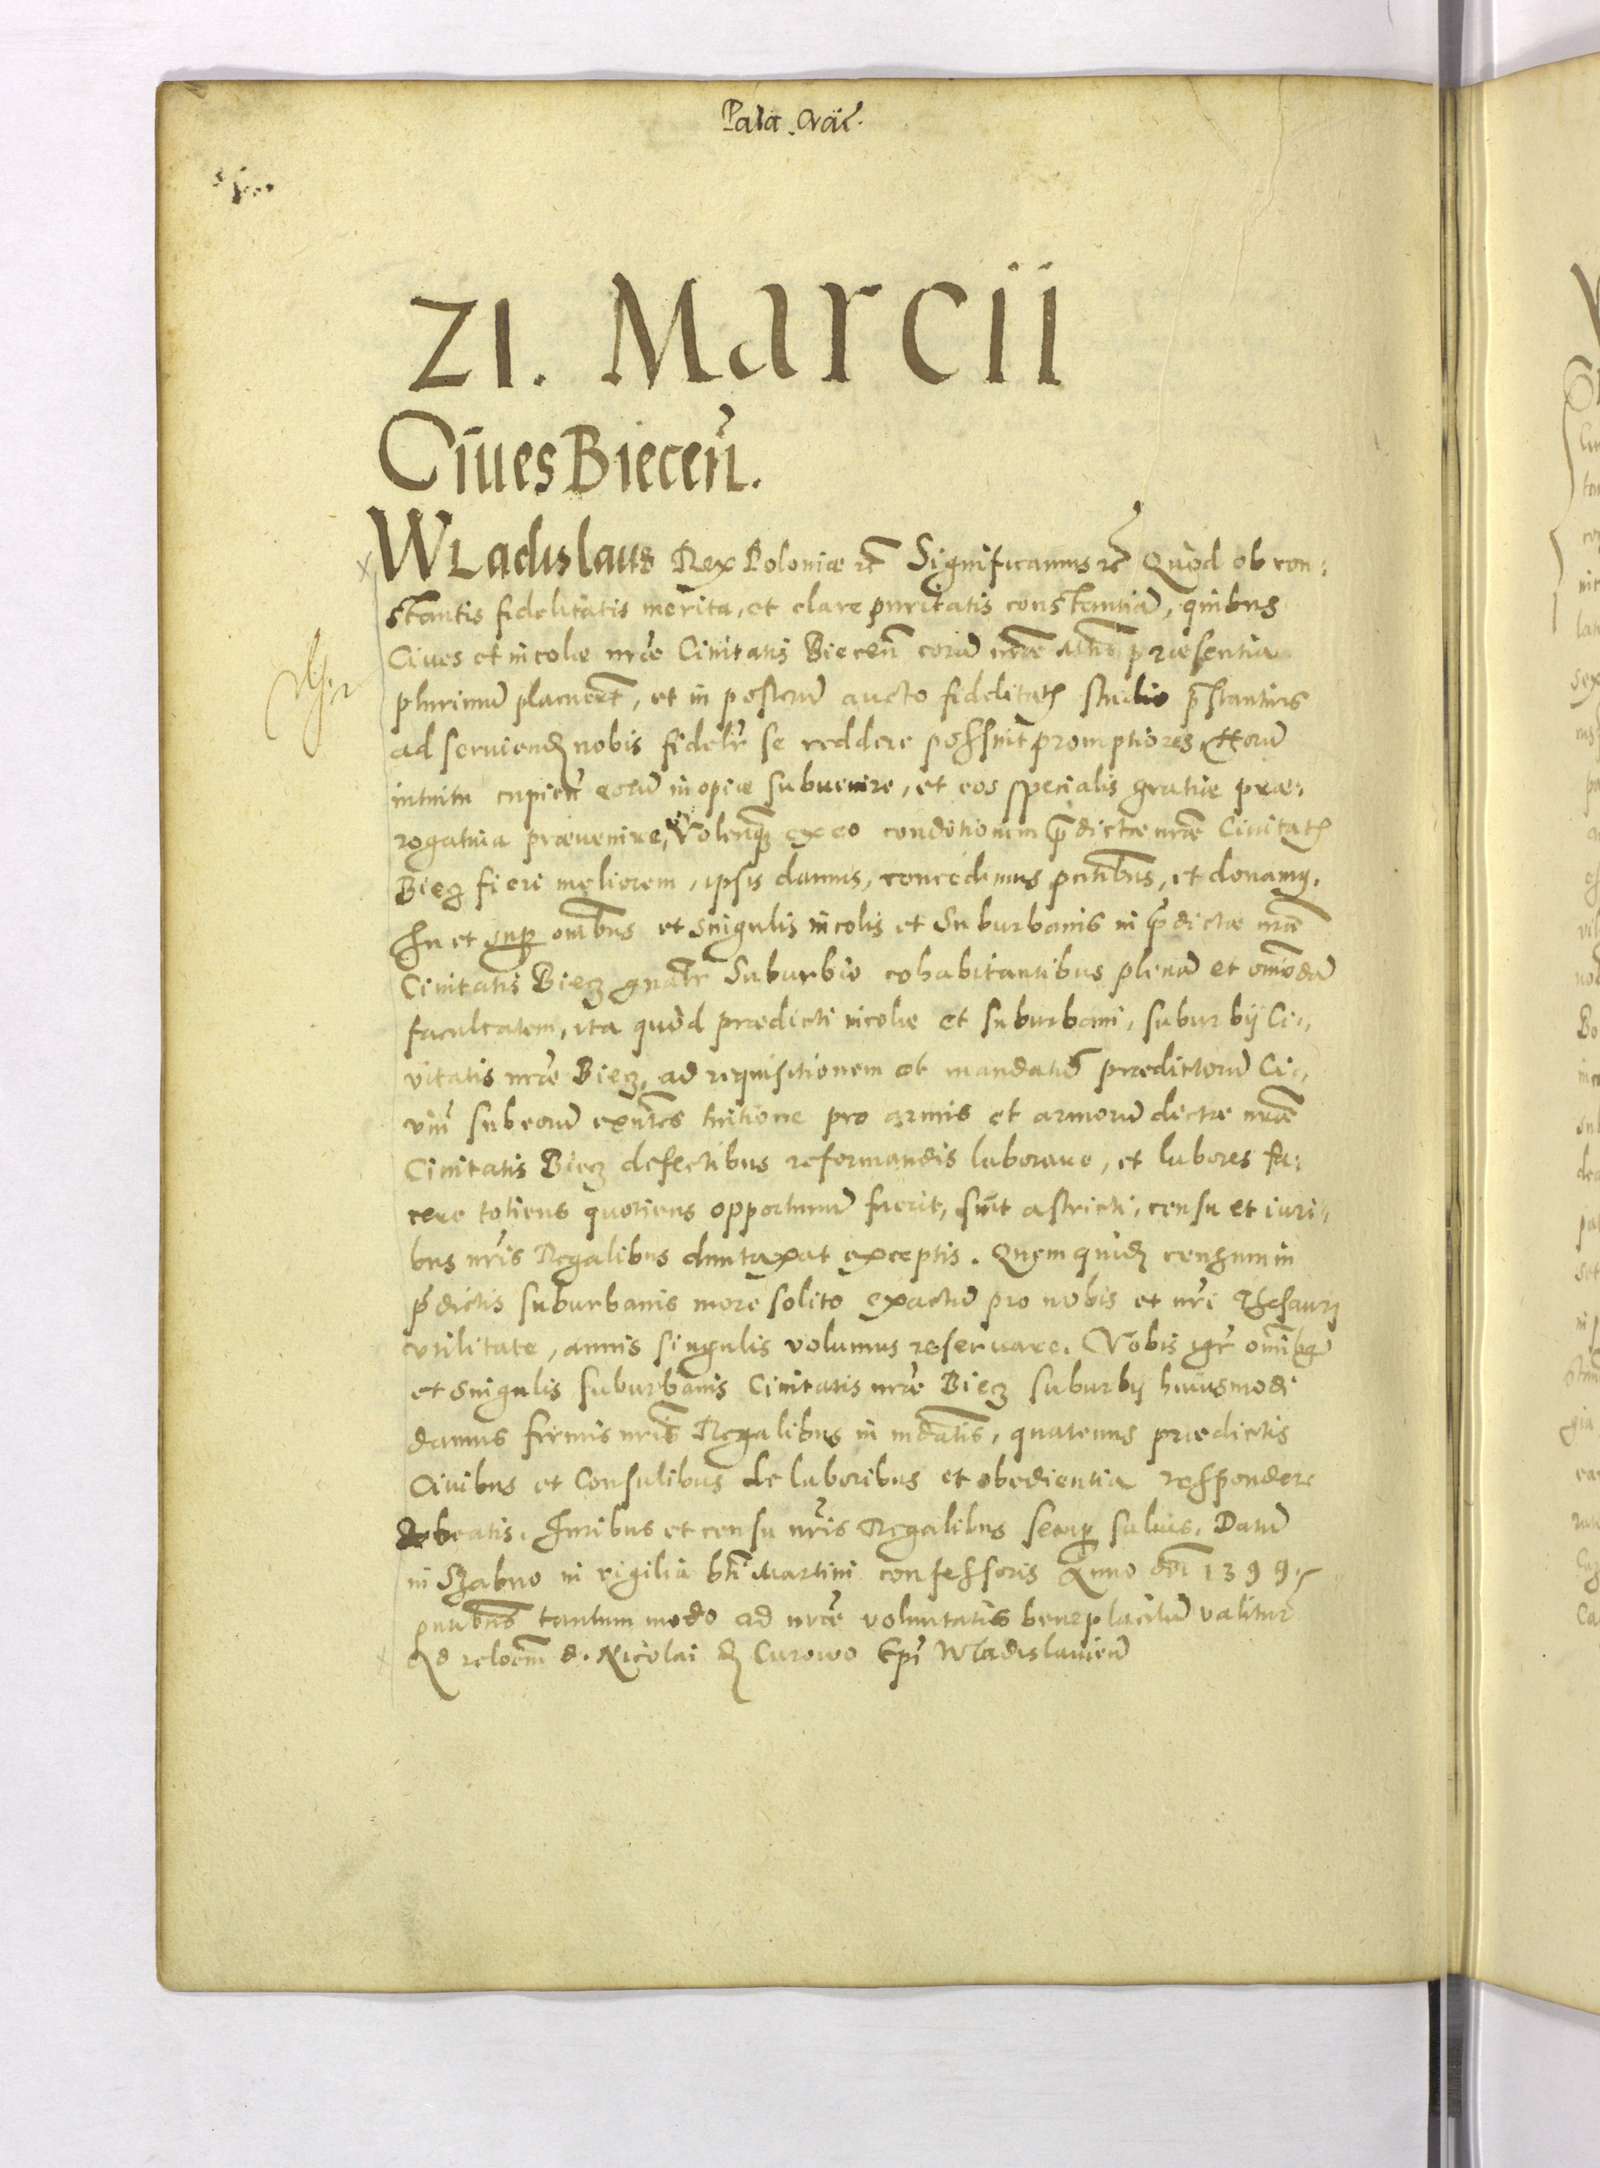 Pala. Crac̃.
21. Marcii
Ciues Biecen̄.
Wladislaus Rex Poloniæ rc̃ Significamus rc̃ Quòd ob con,
stantis fidelitatis merita, et clare puritatis constantiā, quibus
Ciues et incolæ nr̃æ Ciuitatis Biecen̄ corā nr̃æ præsentia
plurimū placuer̃t, et in posterū aucto fidelitatꝭ studio p̃stantius
ad seruiendꝭ nobis fidelr̃ se reddere possint promptiores, Horū
intuitu cupien̄ eorū inopiæ subuenire, et eos specialis gratiæ præ,
rogatiua præuenire, Volen̄qꝫ ex eo conditionem p̃dictæ nr̃æ Ciuitatꝭ
Biecz fieri meliorem, ipsis damus, concedimus pn̄tibus, et donamꝰ.
In et sup om̄bus et singulis incolis et Suburbanis in p̃dictæ nr̃æ
Ciuitatis Biecz gnãlr Suburbio cohabitantibus plenā et om̄odā
facultatem, ita quòd prædicti incolæ et suburbani, suburbij Ci,
uitatis nr̃æ Biecz, ad requisitionem et mandatū prædictorū Ci,
uiū sub eorū exñtes tuitione pro armis et armorū dictæ nr̃æ
Ciuitatis Biecz defectibus reformandis laborare, et labores fa,
cere totiens quotiens opportunū fuerit, sint astricti, censu et iuri,
bus nr̃is Regalibus duntaxat exceptis. Quem quidꝭ censum in
p̃dictis suburbanis more solito exactū pro nobis et nr̃i Thesauri
vtilitate, annis singulis volumus reseruare. Vobis igr̃ om̄ibꝰ
et singulis suburbanis Ciuitatis nr̃æ Biecz suburbij huiusmodi
damus firmis nr̃is Regalibus in mãdatis, quatenus prædictis
Ciuibus et Consulibus de laboribus et obedientia respondere
debeatis. Iuribus et censu nr̃is Regalibus semp saluis. Datū
in Szabno in vigilia bt̃i Martini confessoris Anno dn̄i 1399.
pn̄tibus tantummodo ad nr̃æ voluntatis beneplacitū valitur̃
Ad reloem̄ d. Nicolai dꝭ Curowo Ep̄i Wladislauien̄